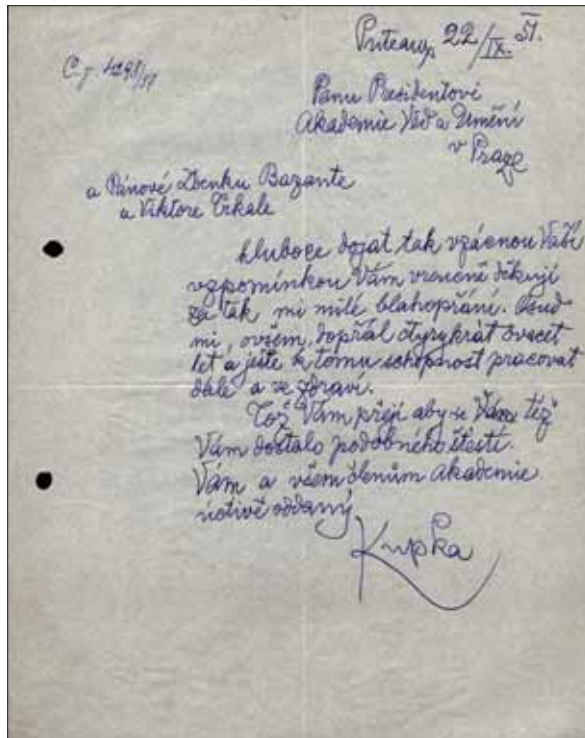 Puteaux 22/IX. 51.
Č.j. 4298/51
Panu Presidentovi
Akademie Věd a Umění
v Praze
a Pánové Zdenku Bazante
a Viktore Trkale
hluboce dojat tak vzácnou Vaší
vzpomínkou Vám vroucně děkuji
za tak mi milé blahopřání. Osud
mi, ovšem, dopřál čtyrykrát dvacet
let a ještě k tomu schopnost pracovat
dále a ve zdraví.
Což Vám přeji aby se Vám též
Vám dostalo podobného štěstí.
Vám a všem členům Akademie
uctivě oddaný
Kupka